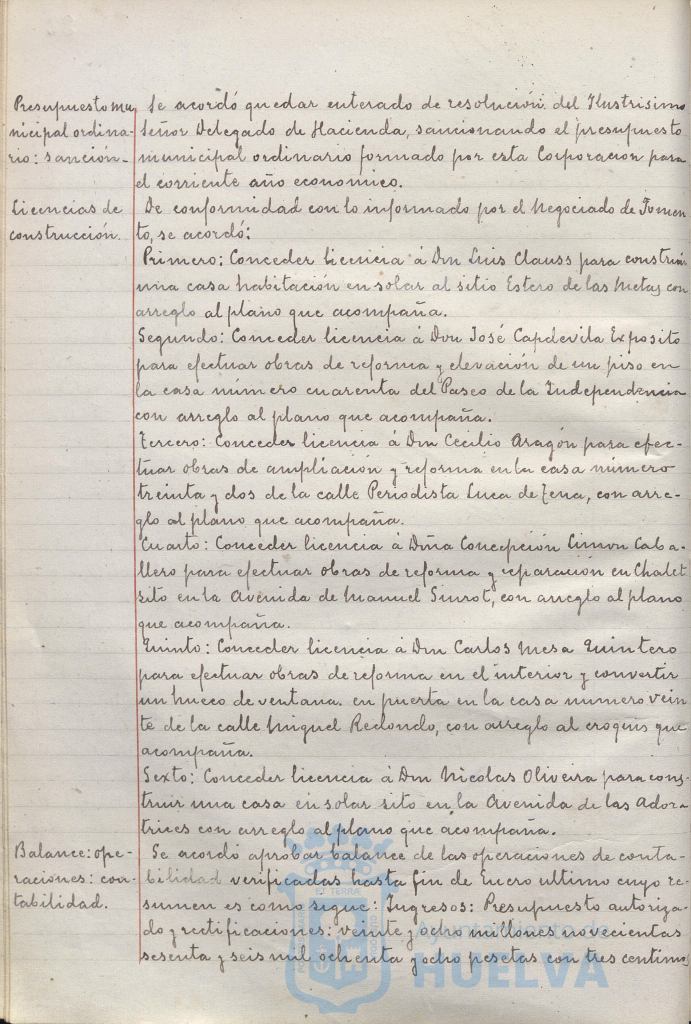 Presupuesto mu
nicipal ordina-
rio: sanción-
Se acordó quedar enterado de resolución del Ilustrisimo
Señor Delegado de Hacienda, sancionando el presupuesto
municipal ordinario formado por esta Corporación para
el corriente año economico.
Licencias de
construcción.
De conformidad con lo informado por el Negociado de Fomen
to, se acordó:
Primero: Conceder licencia á Don Luis Clauss para construir
una casa habitación en solar al sitio Estero de las Metas con
arreglo al plano que acompaña.
Segundo: Conceder licencia á Don José Capdevila Exposito
para efectuar obras de reforma y elevación de un piso en
la casa número cuarenta del Paseo de la Independencia
con arreglo al plano que acompaña.
Tercero: Conceder licencia á Don Cecilio Aragón para efec-
tuar obras de ampliación y reforma en la casa número
treinta y dos de la calle Periodista Luca de Tena, con arre-
glo al plano que acompaña.
Cuarto: Conceder licencia á Doña Concepción Limon Caba-
llero para efectuar obras de reforma y reparación en Chalet
sito en la Avenida de Manuel Siurot, con arreglo al plano
que acompaña.
Quinto: Conceder licencia á Don Carlos Mesa Quintero
para efectuar obras de reforma en el interior y convertir
un hueco de ventana. en puerta en la casa numero vein
te de la calle Miguel Redondo, con arreglo al croquis que
acompaña.
Sexto: Conceder licencia á Don Nicolas Oliveira para cons
truir una casa en solar sito en la Avenida de las Adora
trices con arreglo al plano que acompaña.
Balance: ope-
raciones: con-
tabilidad.
Se acordó aprobar balance de las operaciones de conta-
bilidad verificadas hasta fin de Enero ultimo cuyo re-
sumen es como sigue: Ingresos: Presupuesto autoriza-
do y rectificaciones: veinte y ocho millones novecientas
sesenta y seis mil ochenta y ocho pesetas con tres centimos
Ayuntamiento de
HUELVA